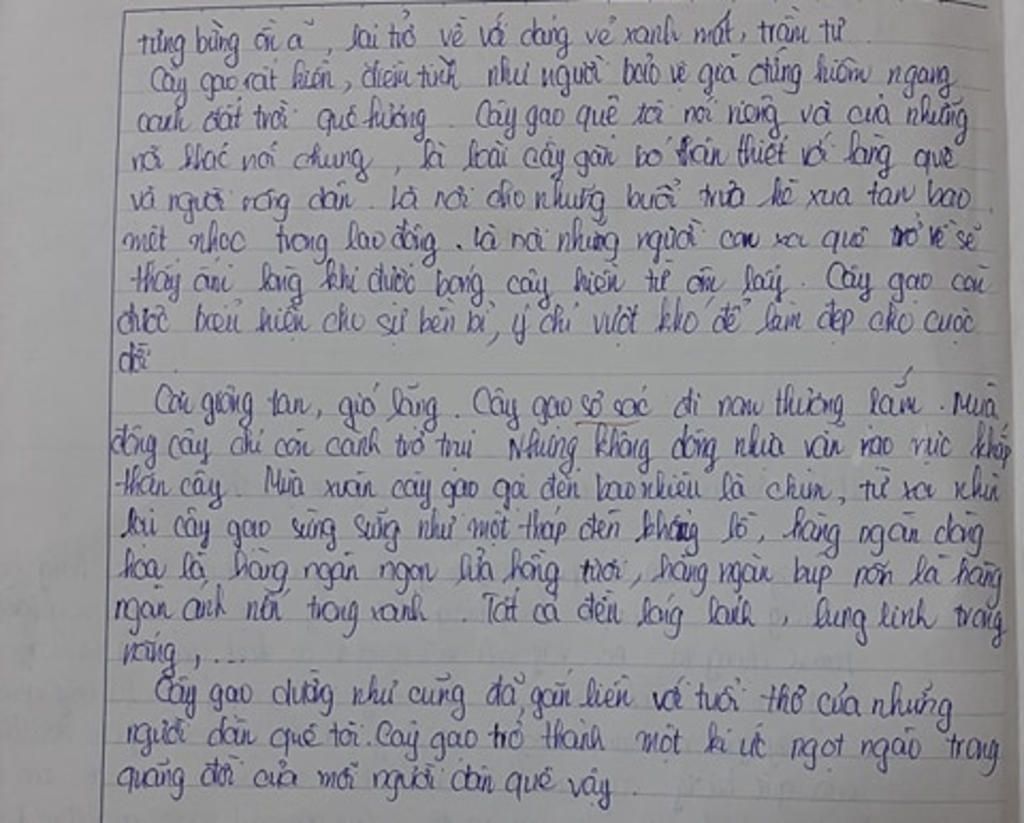 tưng bừng ồn ã, lại trở về với dáng vẻ xanh mát, trầm tư
Cây gạo rất hiền, điềm tĩnh như người bảo vệ già đứng hiên ngang
canh đất trời quê hương. Cây gạo quê tôi nói riêng và của những
nơi khác nói chung, là loài cây gắn bó thân thiết với làng quê
và người nông dân. Là nơi cho những buổi trưa hè xua tan bao
mệt nhọc trong lao động. Là nơi những người con xa quê trở về sẽ
thấy ấm lòng khi được bóng cây hiền từ ôm lấy. Cây gạo còn
được biểu hiện cho sự bền bỉ, ý chí vượt khó để làm đẹp cho cuộc
đời
Cơn giông tan, gió lặng. Cây gạo sơ xác đi nom thương lắm. Mùa
đông cây chỉ còn cành trơ trụi Nhưng không dòng nhựa vẫn rạo rực khắp
thân cây. Mùa xuân cây gạo gọi đến bao nhiêu là chim, từ xa nhìn
lại cây gạo sừng sững như một tháp đèn khổng lồ, hàng ngàn bông
hoa là hàng ngàn ngọn lửa hồng tươi, hàng ngàn búp nõn là hàng
ngàn ánh nến trong xanh. Tất cả đều lóng lánh, lung linh trong
nắng,...
Cây gạo dường như cũng đã gắn liền với tuổi thơ của những
người dân quê tôi. Cây gạo trở thành một kí ức ngọt ngào trong
quãng đời của mỗi người dân quê vậy.